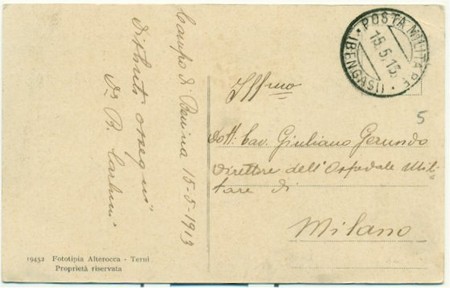 Campo di Benina 15-5-1913
distinti ossequi
Dr. R.
19432 Fototipia Alterocca - Terni
Proprietà riservata
POSTA MILITARE
15.5.13
(BENGASI)
5
Ill^mo
Dott. Cav. Giuliano
Direttore dell'Ospedale Mili
tare di
Milano